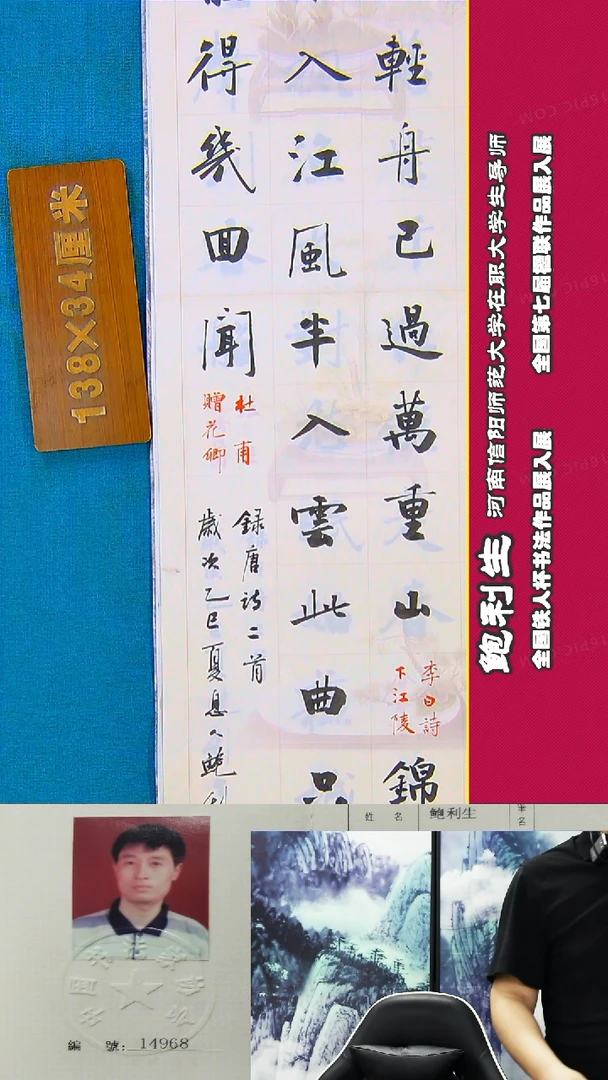 輕舟已過萬重山
李白詩
下江陵
錦
入江風半入雲此曲
得幾回聞
杜甫
贈花卿
録唐詩二首
歲次乙巳夏息人鮑
138×34厘米
鲍利生
河南信阳师范大学在职大学生导师
全国铁人杯书法作品展入展
全国第七届楹联作品展入展
姓名
鲍利生
筆名
編號:14968